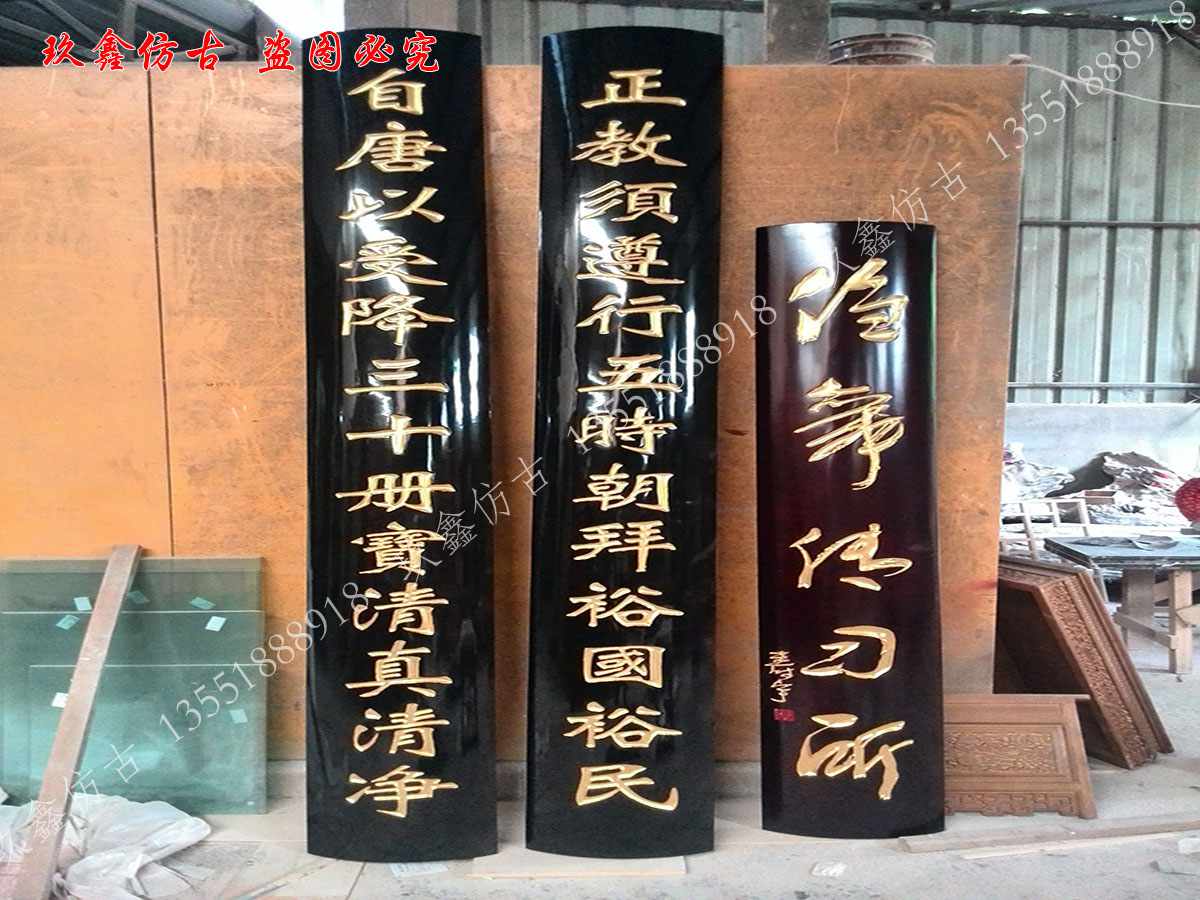 玖鑫仿古 盗图必究
自唐以受降三十册寶清真清净
正教須遵行五時朝拜裕國裕民
筝传习所
玖鑫仿古 13551888918
玖鑫仿古 13551888918
玖鑫仿古 13551888918